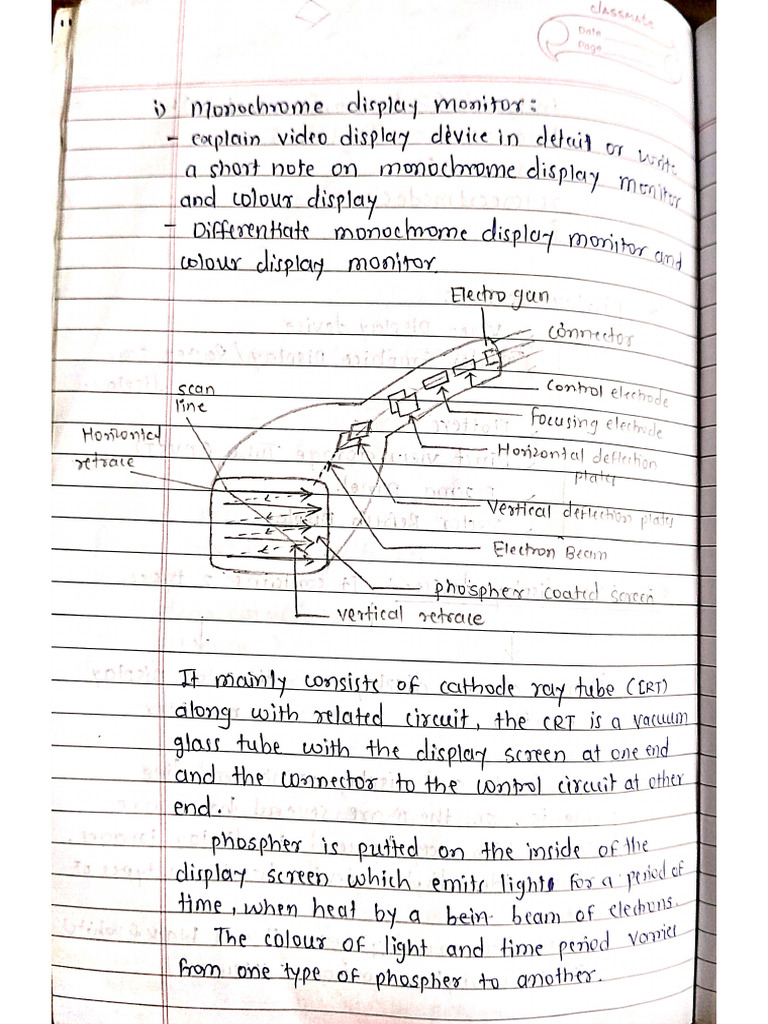 classmate
Date
Page
i) Monochrome display monitor:
- explain video display device in detail or write
a short note on monochrome display monitor
and colour display
- Differentiate monochrome display monitor and
colour display monitor.
Electro gun
connector
scan
line
control electrode
focusing electrode
Horizontal
retrace
Horizontal deflection
plates
vertical deflection plates
Electron Beam
phospher coated screen
vertical retrace
It mainly consists of cathode ray tube (CRT)
along with related circuit, the CRT is a vacuum
glass tube with the display screen at one end
and the connector to the control circuit at other
end.
phospher is putted on the inside of the
display screen which emits light for a period of
time, when heat by a bein beam of elections.
The colour of light and time period varries
from one type of phospher to another.